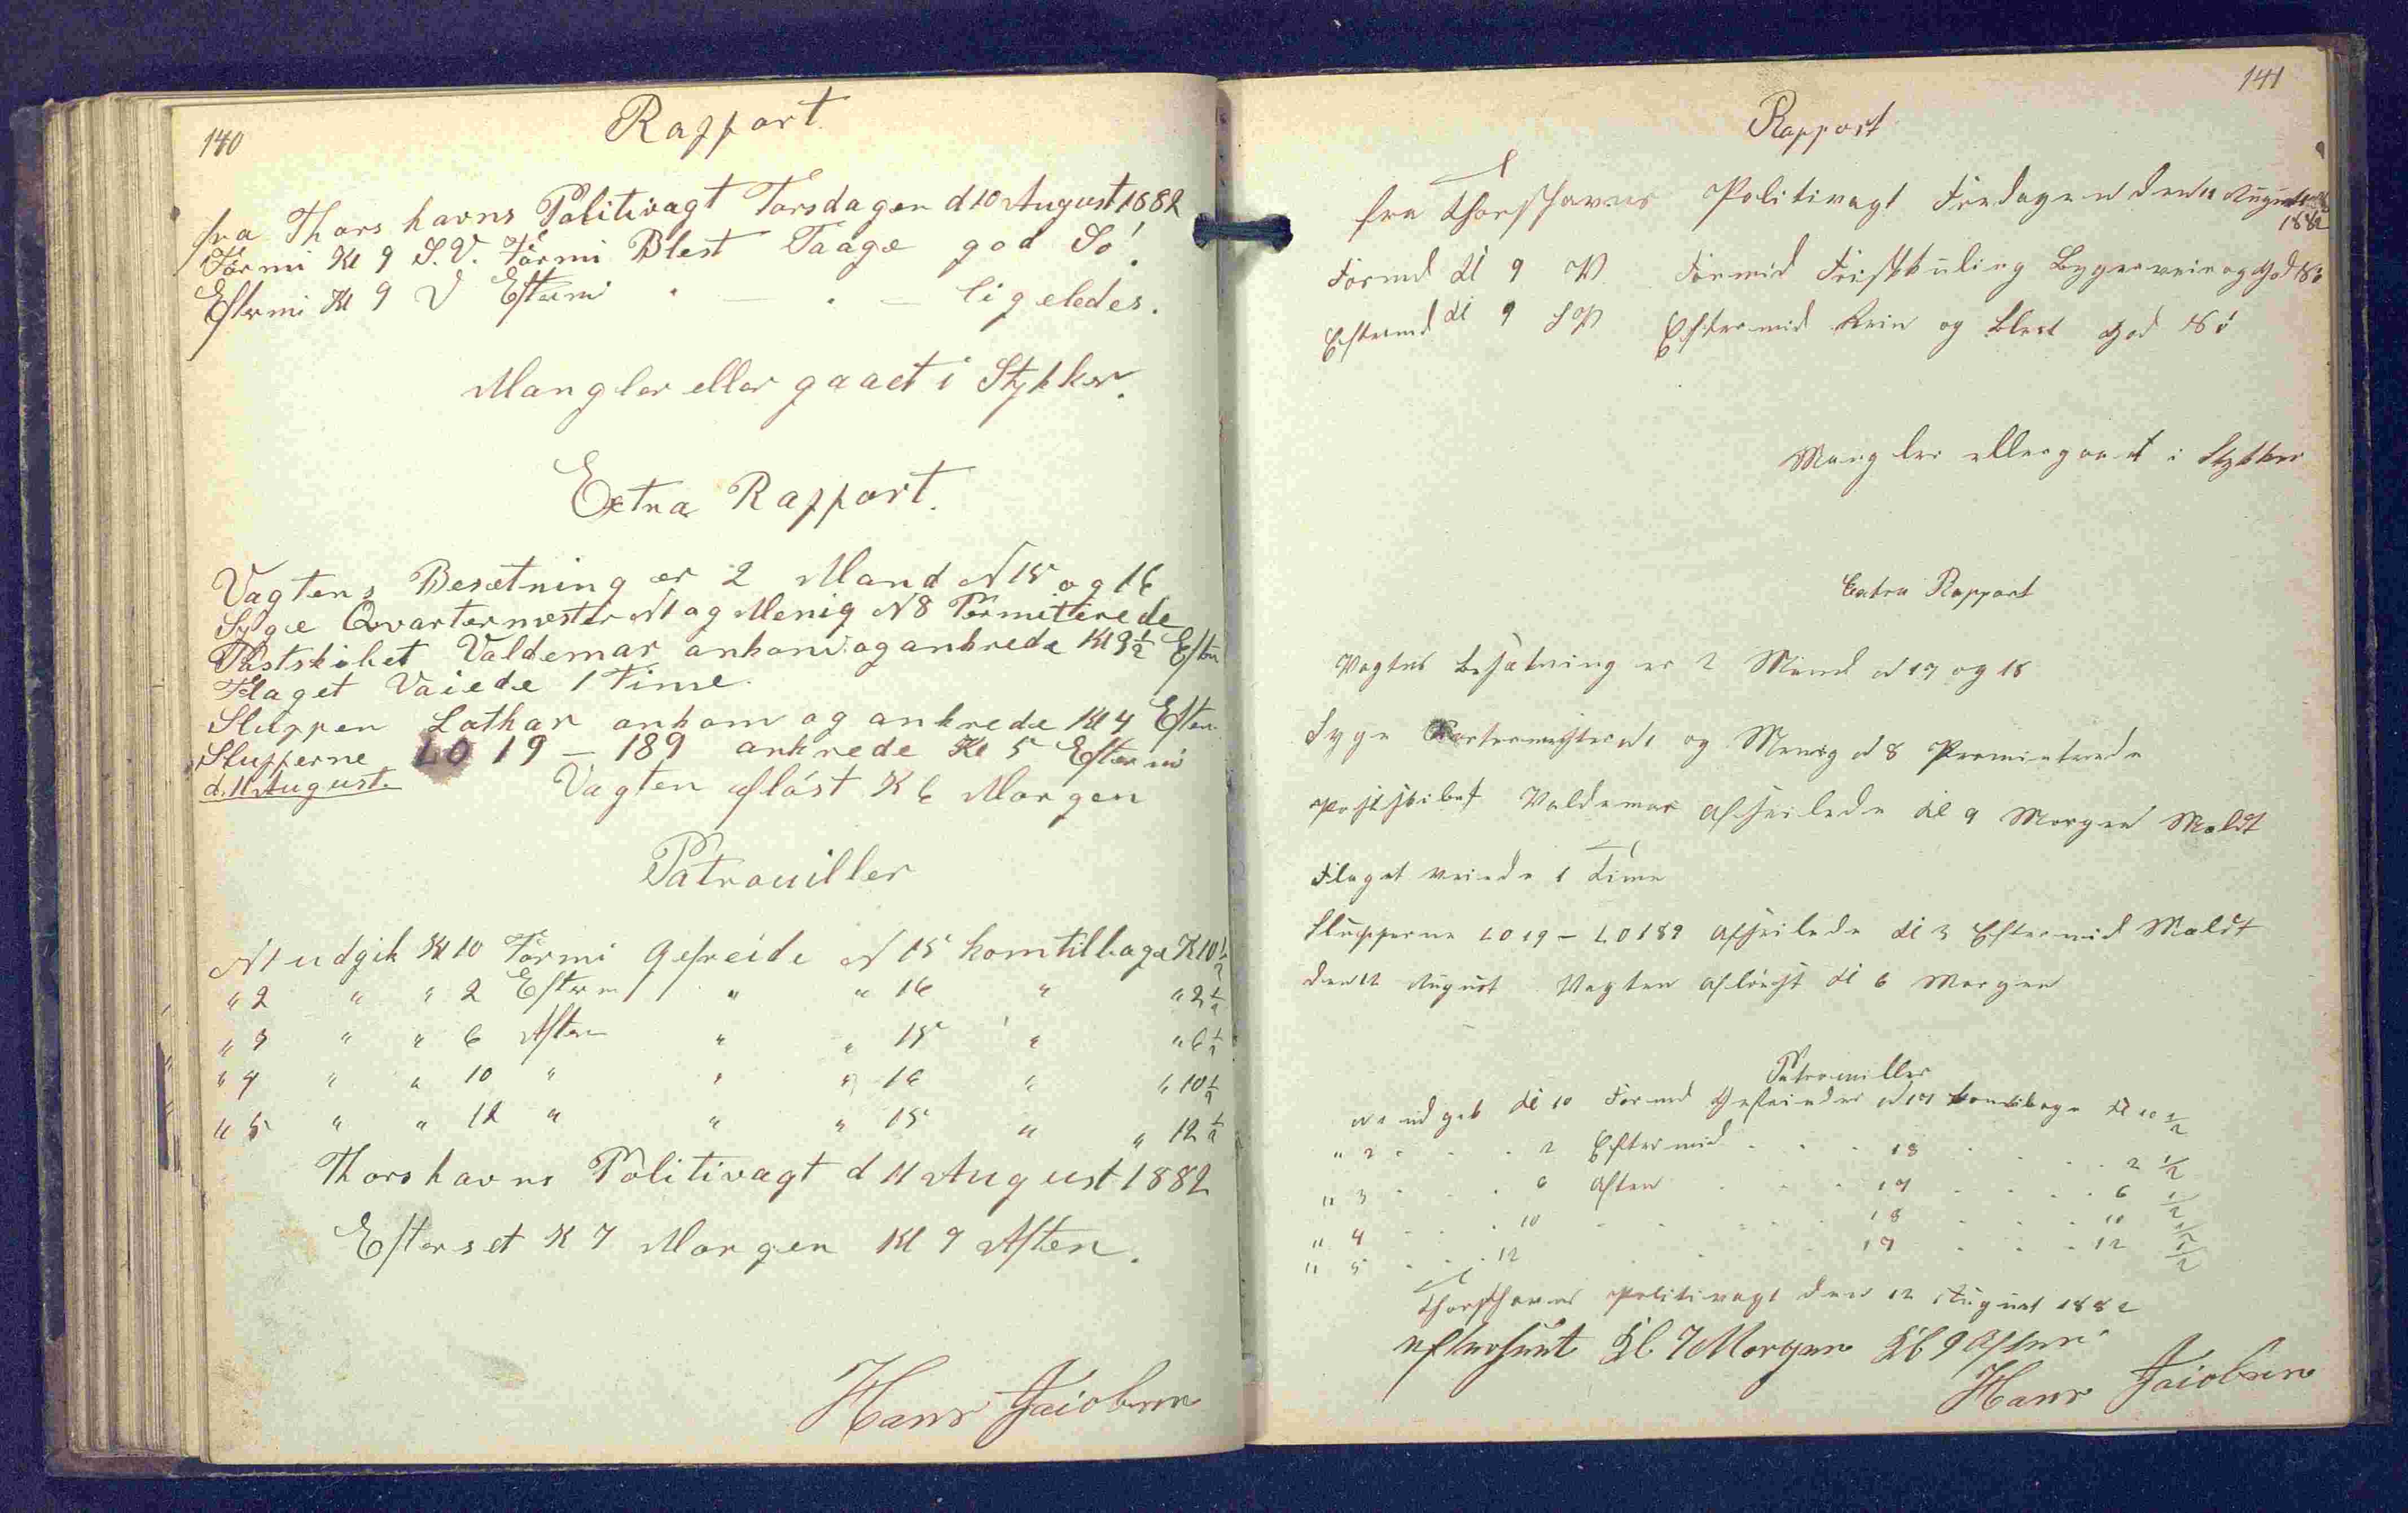 140
Rapport
fra Thorshavns Politivagt Torsdagen d 10 August 1882
Formi Kl 9 S.V. Formi Blest Taage god So!
Eftermi Kl 9 V Eftermi " — " — ligeledes.
Mangler eller gaaet i Stykker.
Extra Rapport.
Vagtens Besætning er 2 Mand N 15 og 16
Syge Qvartermester N1 og Menig N8 Permitterede
Postskibet Valdemar ankom og ankrede Kl 9½ Efter
Flaget Vaiede 1 Time
Sluppen Lothar ankom og ankrede Kl 4 Efter
Slupperne LO 19 — 189 ankrede Kl 5 Eftermi
d. 11 August. Vagten afløst K 6 Morgen
Patrouiller
N1 udgik Kl 10 Formi Gefreide N 15 kom tilbage K 10½
" 2 " " 2 Efterm " " 16 " " 2½
" 3 " " 6 Aften " " 15 " " 6½
" 4 " " 10 " " " 16 " " 10½
" 5 " " 12 " " " 15 " " 12½
Thorshavns Politivagt d 11 August 1882
Efterset K 7 Morgen Kl 9 Aften.
Hans Jacobsen
141
Rapport
fra Thorshavns Politivagt Fredagen den 11 August
1882
Formd Kl 9 V Formid Friskkuling Bygerveir og God Sö
Eftermd Kl 9 SV Eftermid Rein og Blest God Sö
Mangler eller gaaet i Stykker
Extra Rapport
Vagtens Besætning er 2 Mand N 17 og 18
Syge Qvartermester N1 og Menig N 8 Permiterede
Postskibet Valdemar afseilede Kl 9 Morgen Meldt
Flaget veiede 1 Time
Slupperne LO 19 – LO 189 afseilede Kl 3 Eftermid Meldt
den 12 August Vagten aflöest Kl 6 Morgen
Patrouiller
N 1 udgik Kl 10 Formd Gefreider N 17 komtilbage Kl 10 ½
" 2 . . . 2 Eftermid . . . 18 . . . 2 ½
" 3 . . . 6 Aften . . . 17 . . . 6 ½
" 4 . . . 10 . . . . 18 . . . 10 ½
" 5 . . . 12 . . . 17 . . . 12 ½
Thorshavns Politivagt den 12 August 1882
efterseet Kl. 7 Morgen Kl 9 Aften.
Hans Jacobsen